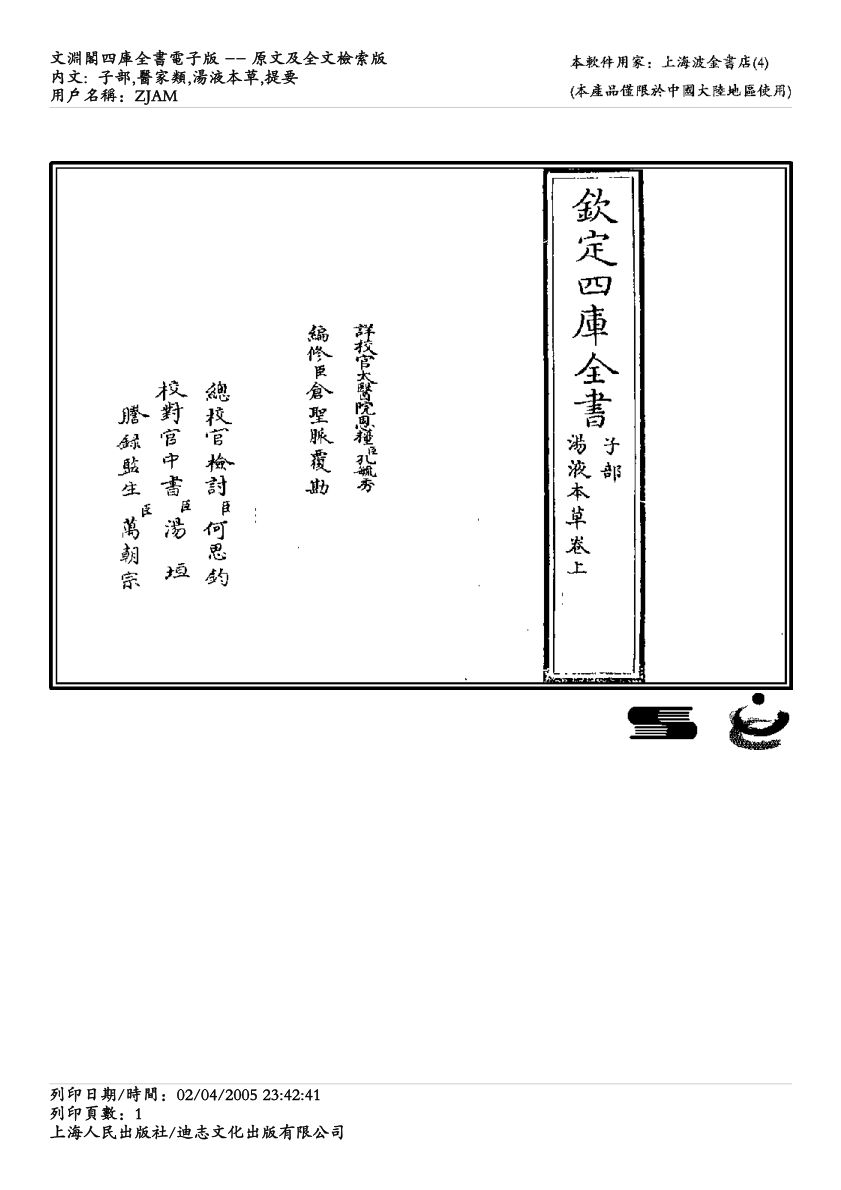 文淵閣四庫全書電子版 -- 原文及全文檢索版
内文: 子部,醫家類,湯液本草,提要
用戶名稱: ZJAM
本軟件用家: 上海波金書店(4)
(本產品僅限於中國大陸地區使用)
欽定四庫全書
子部
湯液本草卷上
詳校官太醫院恩糧臣孔毓秀
編修臣倉聖脈覆勘
總校官檢討臣何思鈞
校對官中書臣湯垣
謄錄監生臣萬朝宗
列印日期/時間: 02/04/2005 23:42:41
列印頁數: 1
上海人民出版社/迪志文化出版有限公司